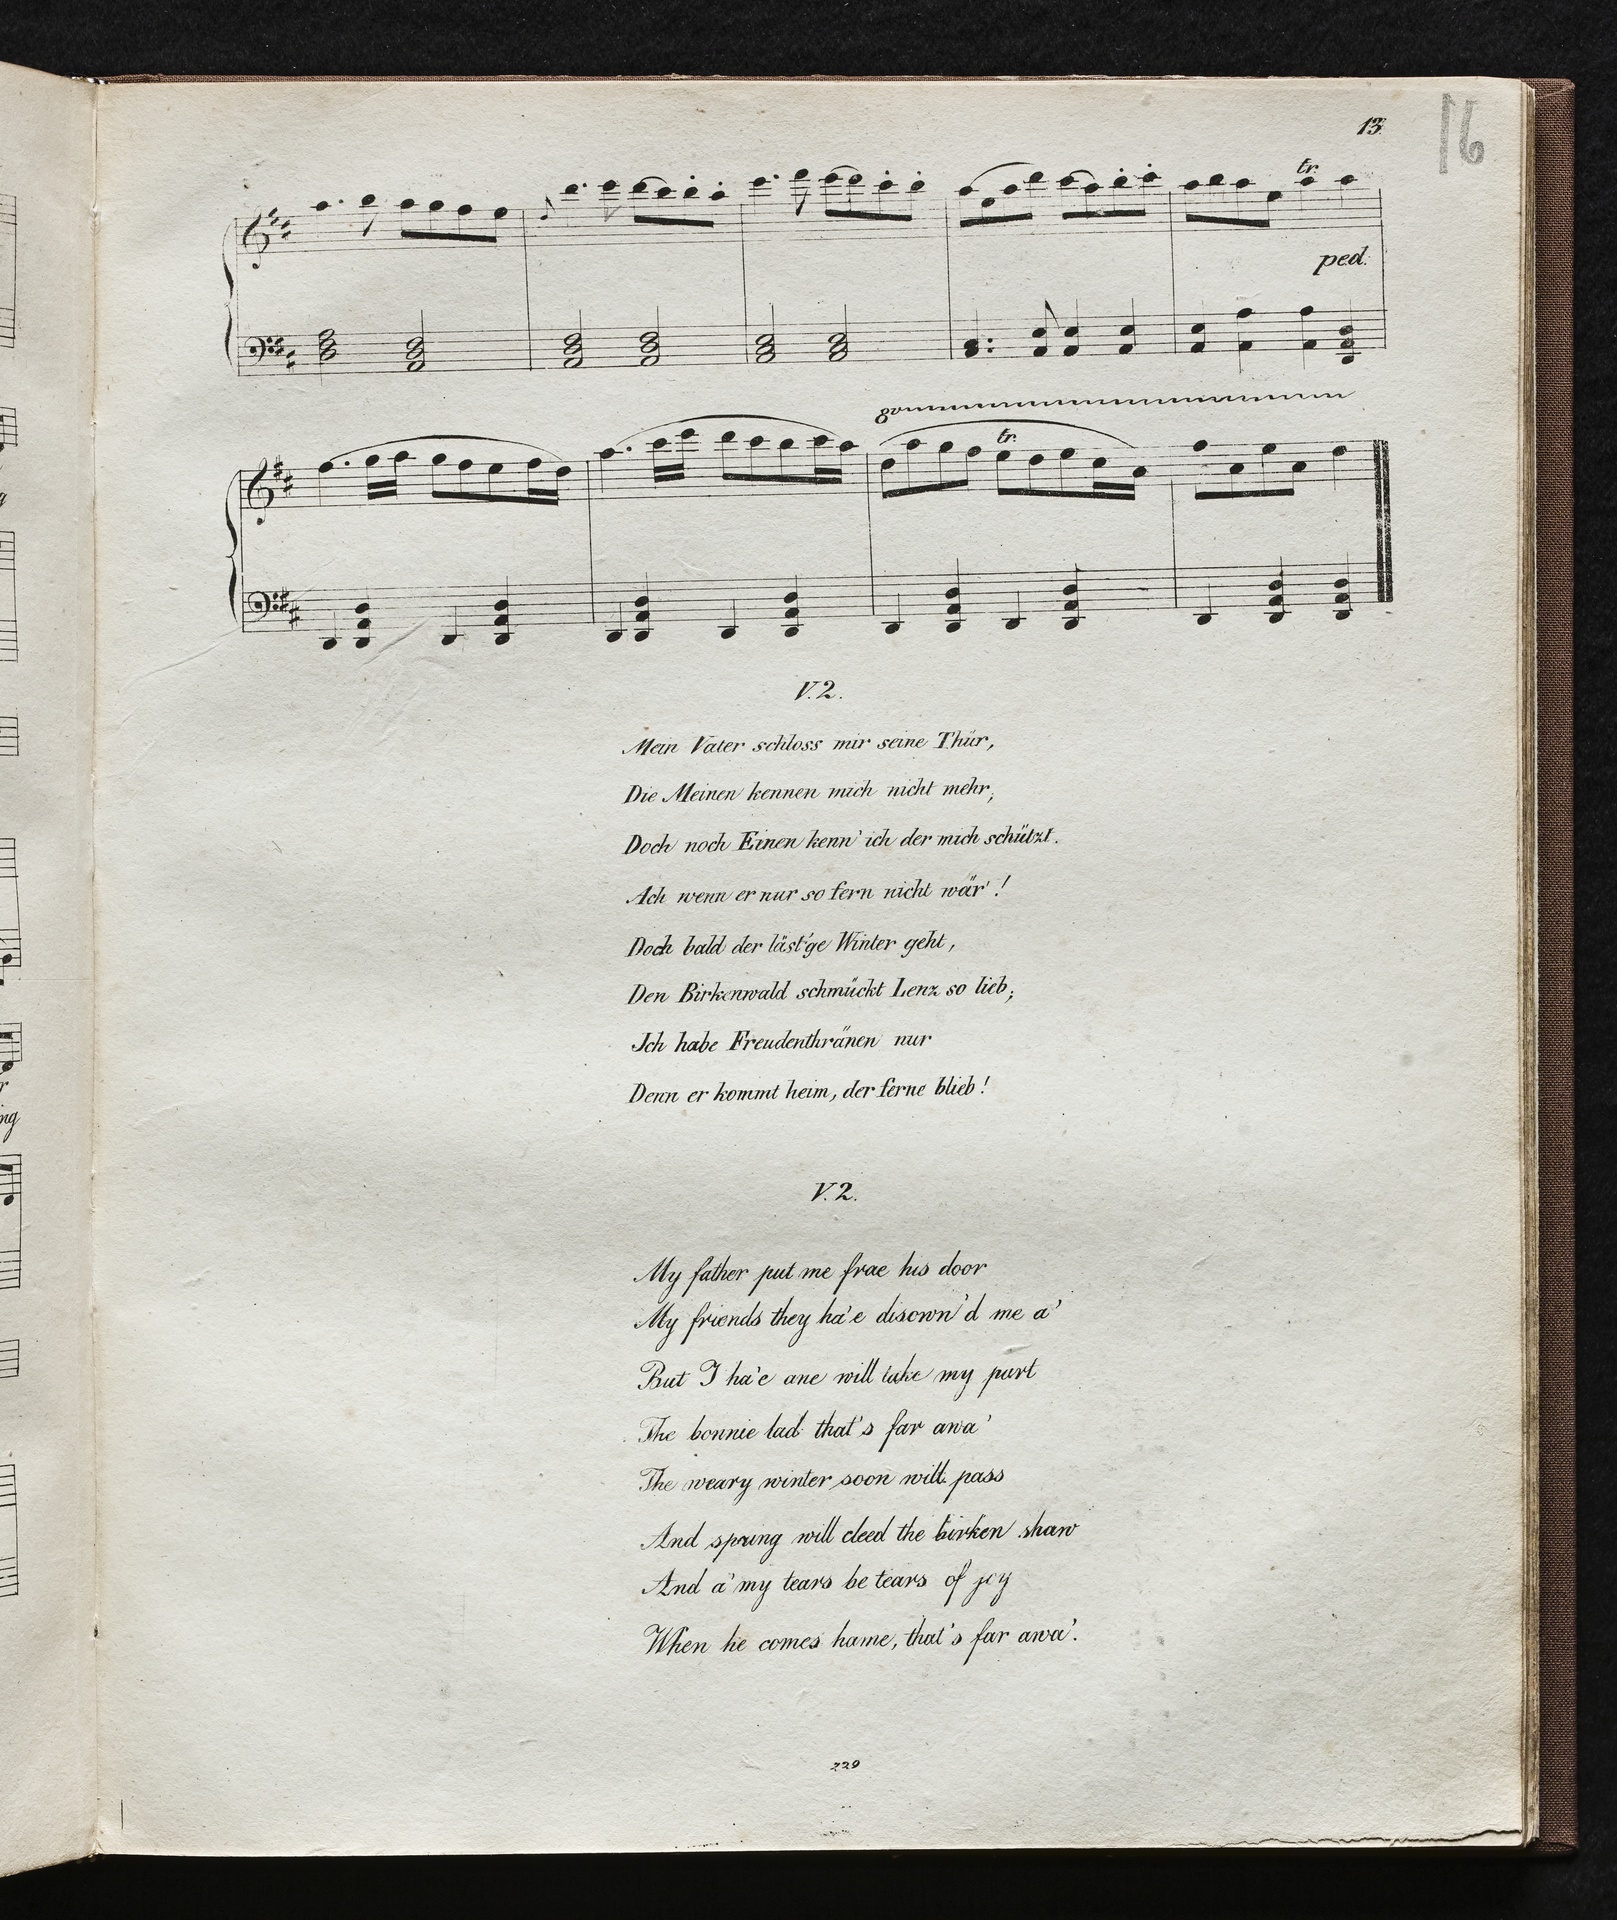 13.
16
tr.
ped.
8va
tr.
V. 2.
Mein Vater schloss mir seine Thür,
Die Meinen kennen mich nicht mehr;
Doch noch Einen kenn' ich der mich schützt.
Ach wenn er nur so fern nicht wär'!
Doch bald der läst'ge Winter geht,
Den Birkenwald schmückt Lenz so lieb;
Ich habe Freudenthränen nur
Denn er kommt heim, der ferne blieb!
V. 2.
My father put me frae his door
My friends they ha'e disown'd me a'
But I ha'e ane will take my part
The bonnie lad that's far awa'
The weary winter soon will pass
And spring will cleed the birken shaw
And a' my tears be tears of joy
When he comes hame, that's far awa'.
229